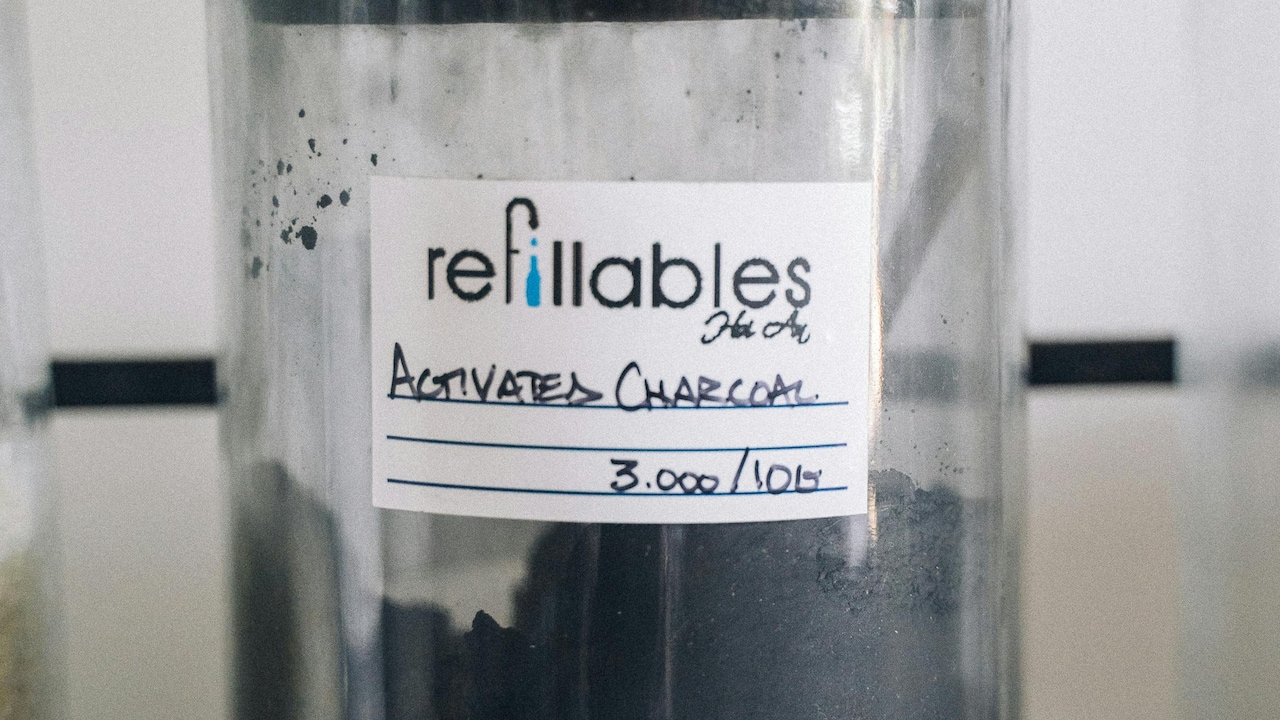 refillables
Hoi An
ACTIVATED CHARCOAL
3.000/10G